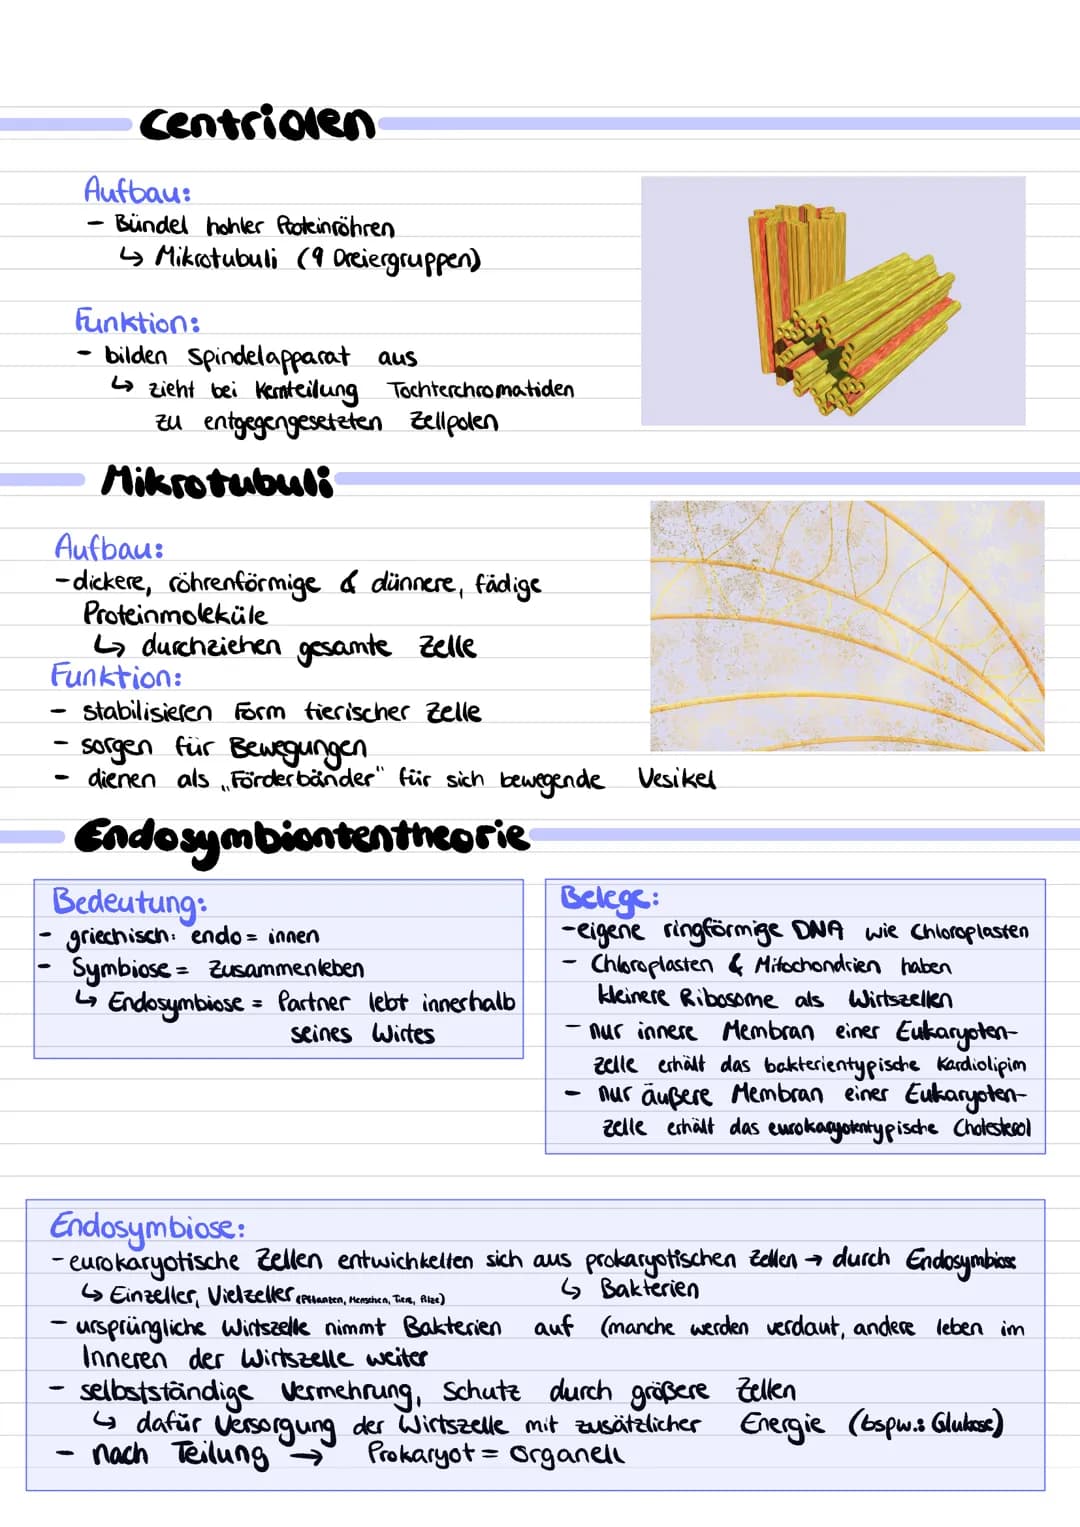 Centriolen
Aufbau:
- Bündel hohler Proteinröhren
↳ Mikrotubuli (9 Dreiergruppen)
Funktion:
- bilden Spindelapparat aus
↳ zieht bei Kernteilung Tochterchromatiden
zu entgegengesetzten Zellpolen
Mikrotubuli
Aufbau:
- dickere, röhrenförmige & dünnere, fädige
Proteinmoleküle
↳ durchziehen gesamte Zelle
Funktion:
- stabilisieren Form tierischer Zelle
- sorgen für Bewegungen
- dienen als „Förderbänder" für sich bewegende Vesikel
Endosymbiontentheorie
Bedeutung:
- griechisch: endo = innen
- Symbiose = Zusammenleben
↳ Endosymbiose = Partner lebt innerhalb
seines Wirtes
Belege:
- eigene ringförmige DNA wie Chloroplasten
- Chloroplasten & Mitochondrien haben
kleinere Ribosome als Wirtszellen
- nur innere Membran einer Eukaryoten-
zelle erhält das bakterientypische Kardiolipim
- nur äußere Membran einer Eukaryoten-
zelle erhält das eurokaryotentypische Cholesterol
Endosymbiose:
- eurokaryotische Zellen entwichkelten sich aus prokaryotischen Zellen → durch Endosymbiose
↳ Einzeller, Vielzeller (Pflanten, Menschen, Tiere, Pilze) ↳ Bakterien
- ursprüngliche Wirtszelle nimmt Bakterien auf (manche werden verdaut, andere leben im
Inneren der Wirtszelle weiter
- selbstständige Vermehrung, Schutz durch größere Zellen
↳ dafür Versorgung der Wirtszelle mit zusätzlicher Energie (bspw.: Glukose)
- nach Teilung → Prokaryot = Organell